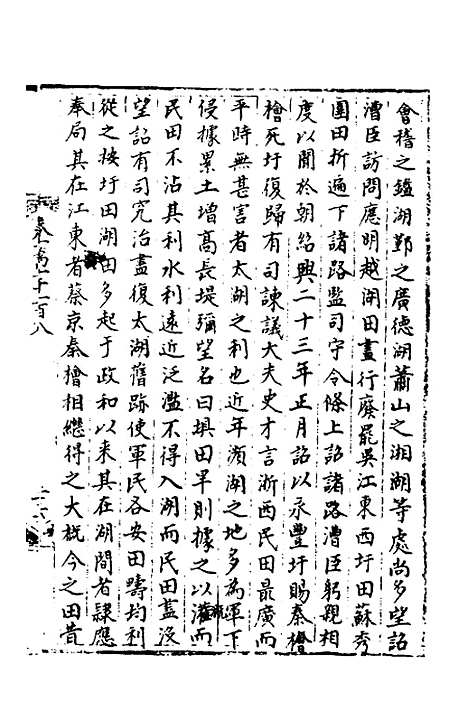 會稽之鑑湖鄞之廣德湖蕭山之湘湖等處尚多望詔
漕臣訪問應明越湖田盡行廢罷其江東西圩田蘇秀
圍田折遍下諸路監司守令條上詔諸路漕臣躬親相
度以聞於朝紹興二十三年正月詔以永豐圩賜秦檜
檜死圩復歸有司諫議大夫史才言浙西民田最廣而
平時無甚害者太湖之利也近年瀕湖之地多為軍下
侵據累土增高長堤彌望名曰埧田旱則據之以溉而
民田不沾其利水則遠近泛濫不得入湖而民田盡沒
望詔有司究治盡復太湖舊跡使軍民各安田疇均利
從之按圩田湖田多起于政和以來其在湖間者隷應
奉局其在江東者蔡京秦檜相繼得之大概今之田昔